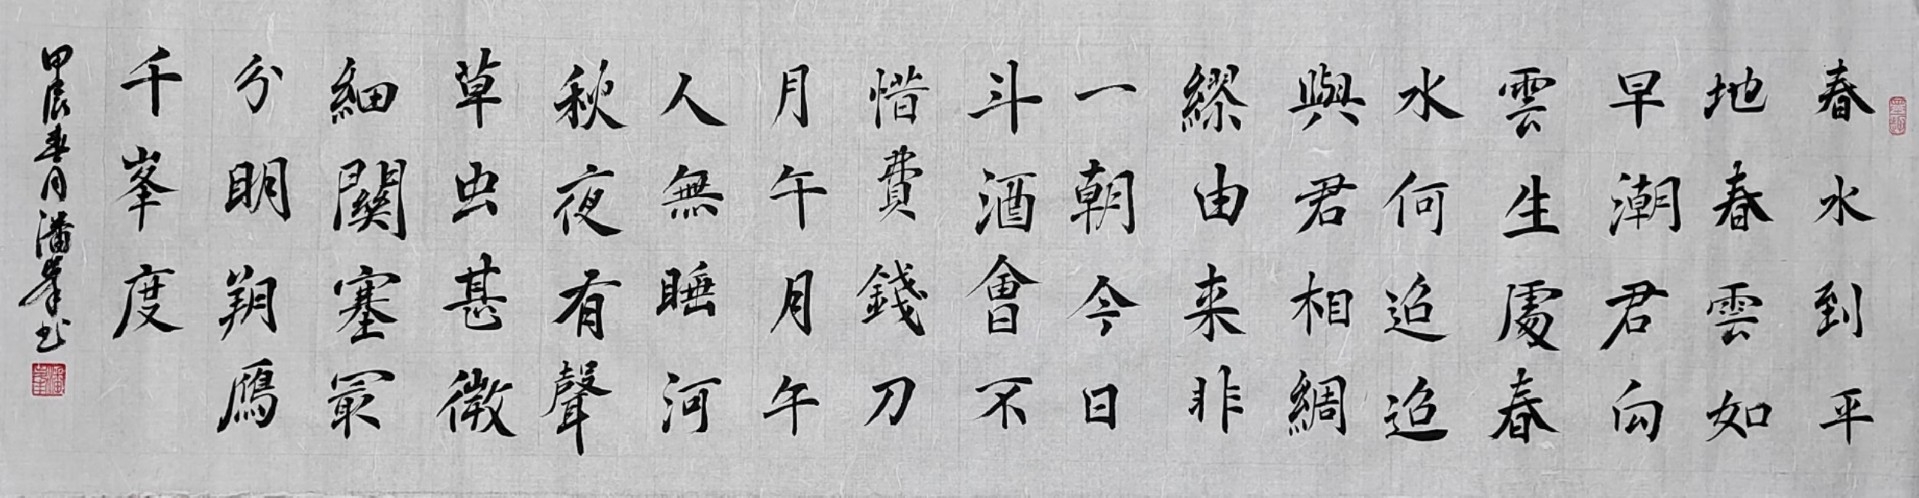 春水到平
地春雲如
早潮君向
雲生處春
水何迢迢
與君相綢
繆由来非
一朝今日
斗酒會不
惜費錢刀
月午月午
人無睡河
秋夜有聲
草虫甚微
細關塞最
分明朔鴈
千峯度
甲辰春月潘峯书